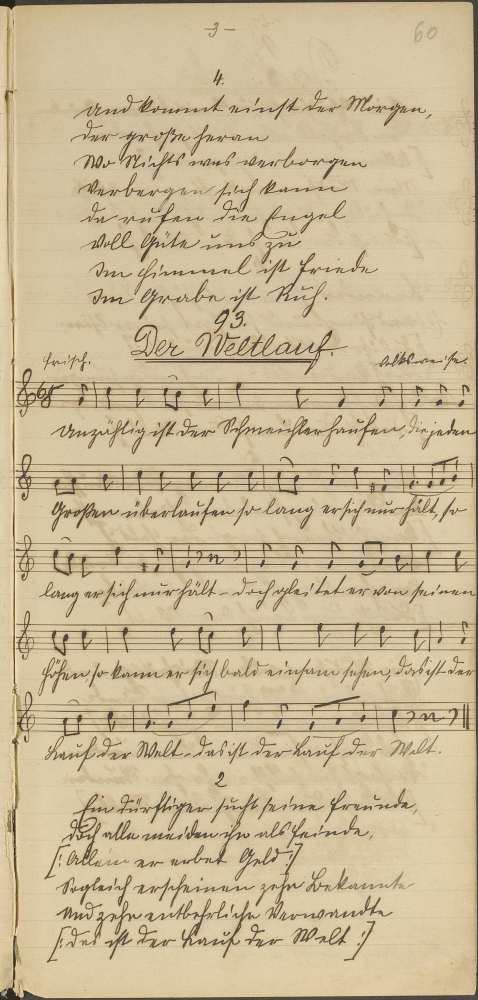 -3-
60
4.
Und kommt einst der Morgen,
der große heran
Wo Nichts was verborgen
Verbergen sich kann
da rufen die Engel
Voll Güte uns zu
Im Himmel ist Friede
Im Grabe ist Ruh.
93.
Der Weltlauf.
Frisch.
Volksweise.
Unzählig ist der Schmeichler haufen, die jeden
Großen überlaufen so lang er sich nur hält, so
lang er sich nur hält - doch gleitet er von seinen
Höhen so kann er sich bald einsam sehen, das ist der
Lauf der Welt - das ist der Lauf der Welt.
2
Ein dürftiger sucht seine Freunde,
doch alle meiden ihn als Feinde,
[: Allein er erbet Geld :]
Sogleich erscheinen zehn Bekannte
Und zehn entbehrliche Verwandte
[: das ist der Lauf der Welt :]